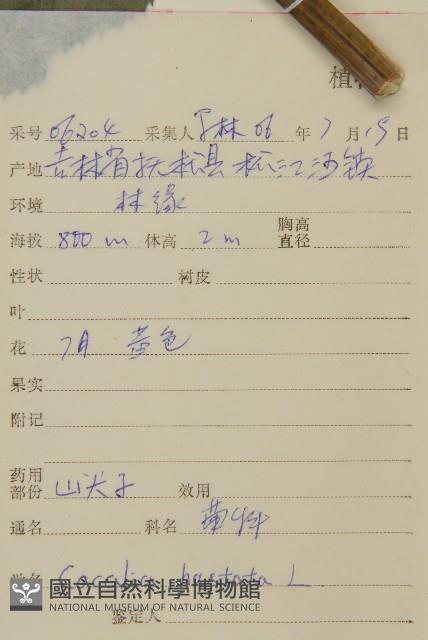 植
采号 06204 采集人 军林 06 年 7 月 19 日
产地 吉林省抚松县松江河镇
环境 林缘
海拔 800 m 体高 2 m 胸高直径
性状 树皮
叶
花 7月 黄色
果实
附记
药用部份 山尖子 效用
通名 科名 菊科
学名 Cacalia hastata L.
國立自然科學博物館
NATIONAL MUSEUM OF NATURAL SCIENCE
鉴定人